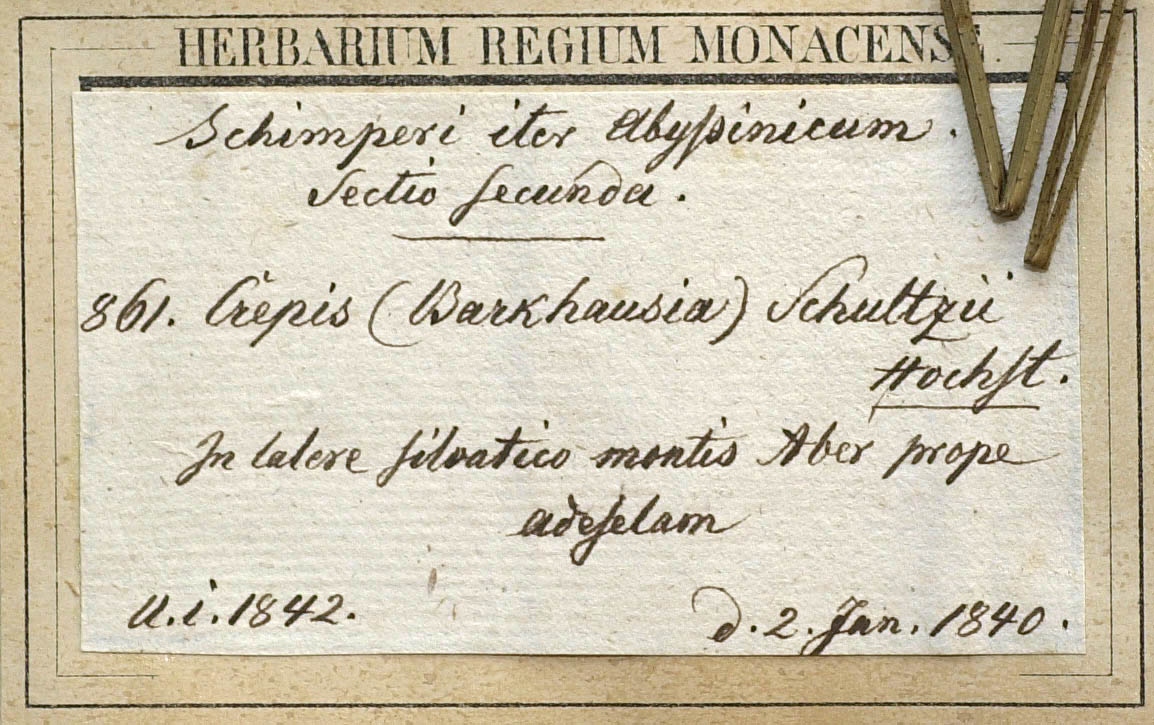 HERBARIUM REGIUM MONACENSE.
Schimperi iter Abyſsinicum.
Sectio ſecunda.
861. Crepis (Barkhausia) Schultzii
Hochſt.
In latere ſilvatico montis Aber prope
adeſelam
U. i. 1842.
d. 2. Jan. 1840.